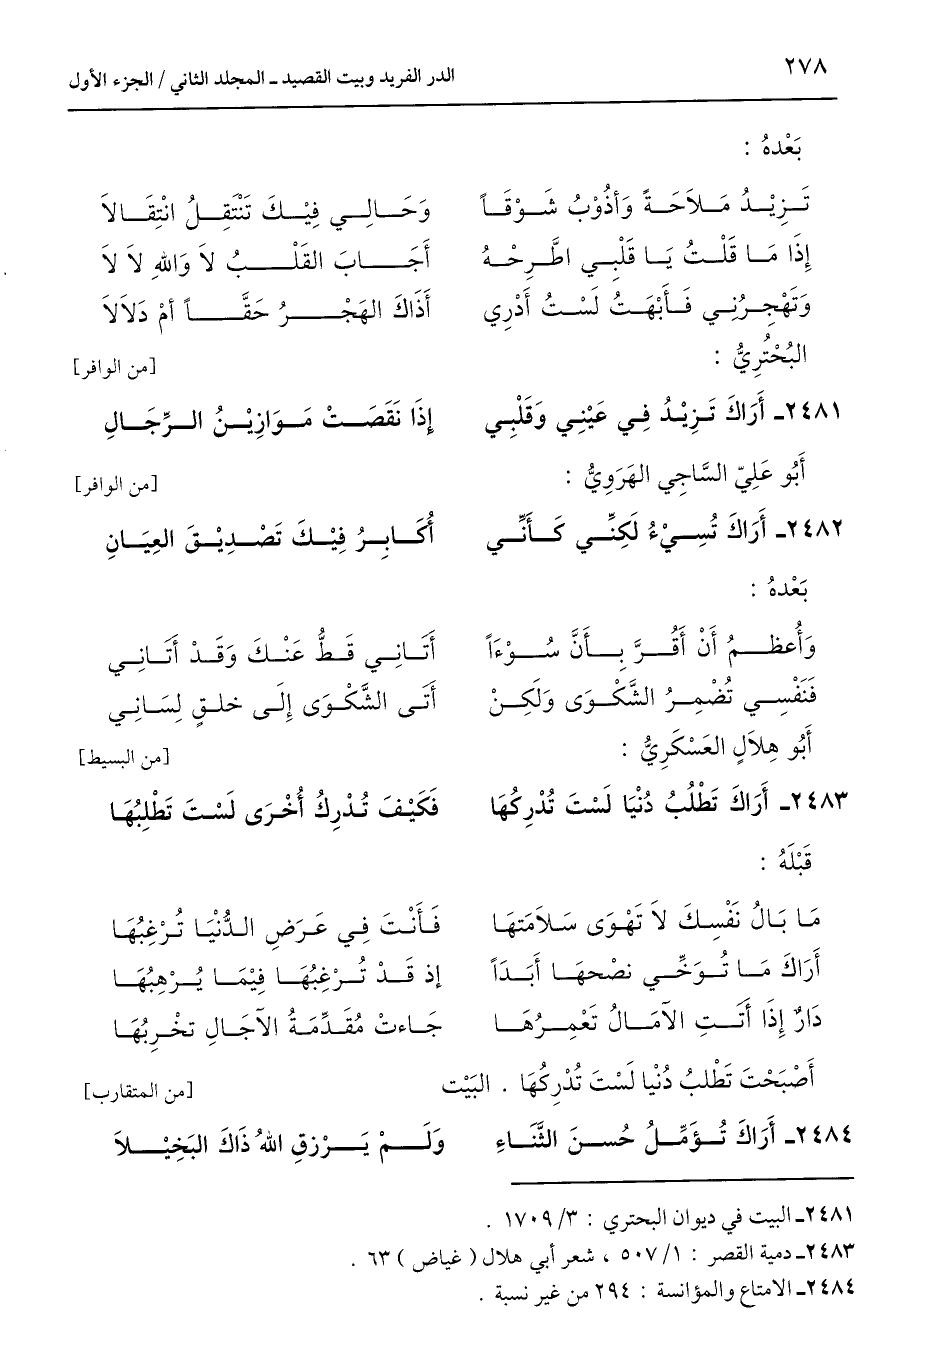 ٢٧٨ الدر الفريد وبيت القصيد ـ المجلد الثاني / الجزء الأول
بَعْدهُ :
تَزِيْدُ مَلاَحَةً وَأَذُوْبُ شَوْقَاً وَحَالِي فِيْكَ تَنْتَقِلُ انْتِقَالاَ
إِذَا مَا قَلْتُ يَا قَلْبِي اطَّرِحْهُ أَجَابَ القَلْبُ لاَ وَاللهِ لاَ لاَ
وَتَهْجِرُنِي فَأَبْهَتُ لَسْتُ أَدْرِي أَذَاكَ الهَجْرُ حَقَّاً أمْ دَلاَلاَ
البُحْتُرِيُّ : [من الوافر]
٢٤٨١ـ أَرَاكَ تَزِيْدُ فِي عَيْنِي وَقَلْبِي إِذَا نَقَصَتْ مَوَازِيْنُ الرِّجَالِ
أَبُو عَلِيّ السَّاجِي الهَرَوِيُّ : [من الوافر]
٢٤٨٢ـ أَرَاكَ تُسِيْءُ لَكِنِّي كَأَنِّي أُكَابِرُ فِيْكَ تَصْدِيْقَ العِيَانِ
بَعْدهُ :
وَأُعظِمُ أَنْ أَقُرَّ بِأَنَّ سُوْءَاً أَتَانِي قَطُّ عَنْكَ وَقَدْ أَتَانِي
فَنَفْسِي تُضْمِرُ الشَّكْوَى وَلَكِنْ أَتَى الشَّكْوَى إِلَى خلقٍ لِسَانِي
أَبُو هِلاَلٍ العَسْكَرِيُّ : [من البسيط]
٢٤٨٣ـ أَرَاكَ تَطْلُبُ دُنْيَا لَسْتَ تُدْرِكُهَا فَكَيْفَ تُدْرِكُ أُخْرَى لَسْتَ تَطْلِبُهَا
قَبْلَهُ :
مَا بَالُ نَفْسِكَ لاَ تَهْوَى سَلاَمَتهَا فَأَنْتَ فِي عَرَضِ الدُّنْيَا تُرْغِبُهَا
أَرَاكَ مَا تُوَخِّي نصْحهَا أَبَدَاً إذ قَدْ تُرْغِبُهَا فِيْمَا يُرْهِبُهَا
دَارٌ إِذَا أَتَتِ الآمَالُ تَعْمِرُهَا جَاءتْ مُقَدِّمَةُ الآجَالِ تخْرِبُهَا
أَصْبَحْتَ تَطْلبُ دُنْيَا لَسْتَ تُدْرِكُهَا . البَيْت [من المتقارب]
٢٤٨٤ـ أَرَاكَ تُؤَمِّلُ حُسنَ الثَّنَاءِ وَلَمْ يَرْزقِ اللهُ ذَاكَ البَخِيْلاَ
٢٤٨١ـ البيت في ديوان البحتري : ٣/ ١٧٠٩ .
٢٤٨٣ـ دمية القصر : ١/ ٥٠٧ ، شعر أبي هلال ( غياض ) ٦٣ .
٢٤٨٤ـ الامتاع والمؤانسة : ٢٩٤ من غير نسبة .